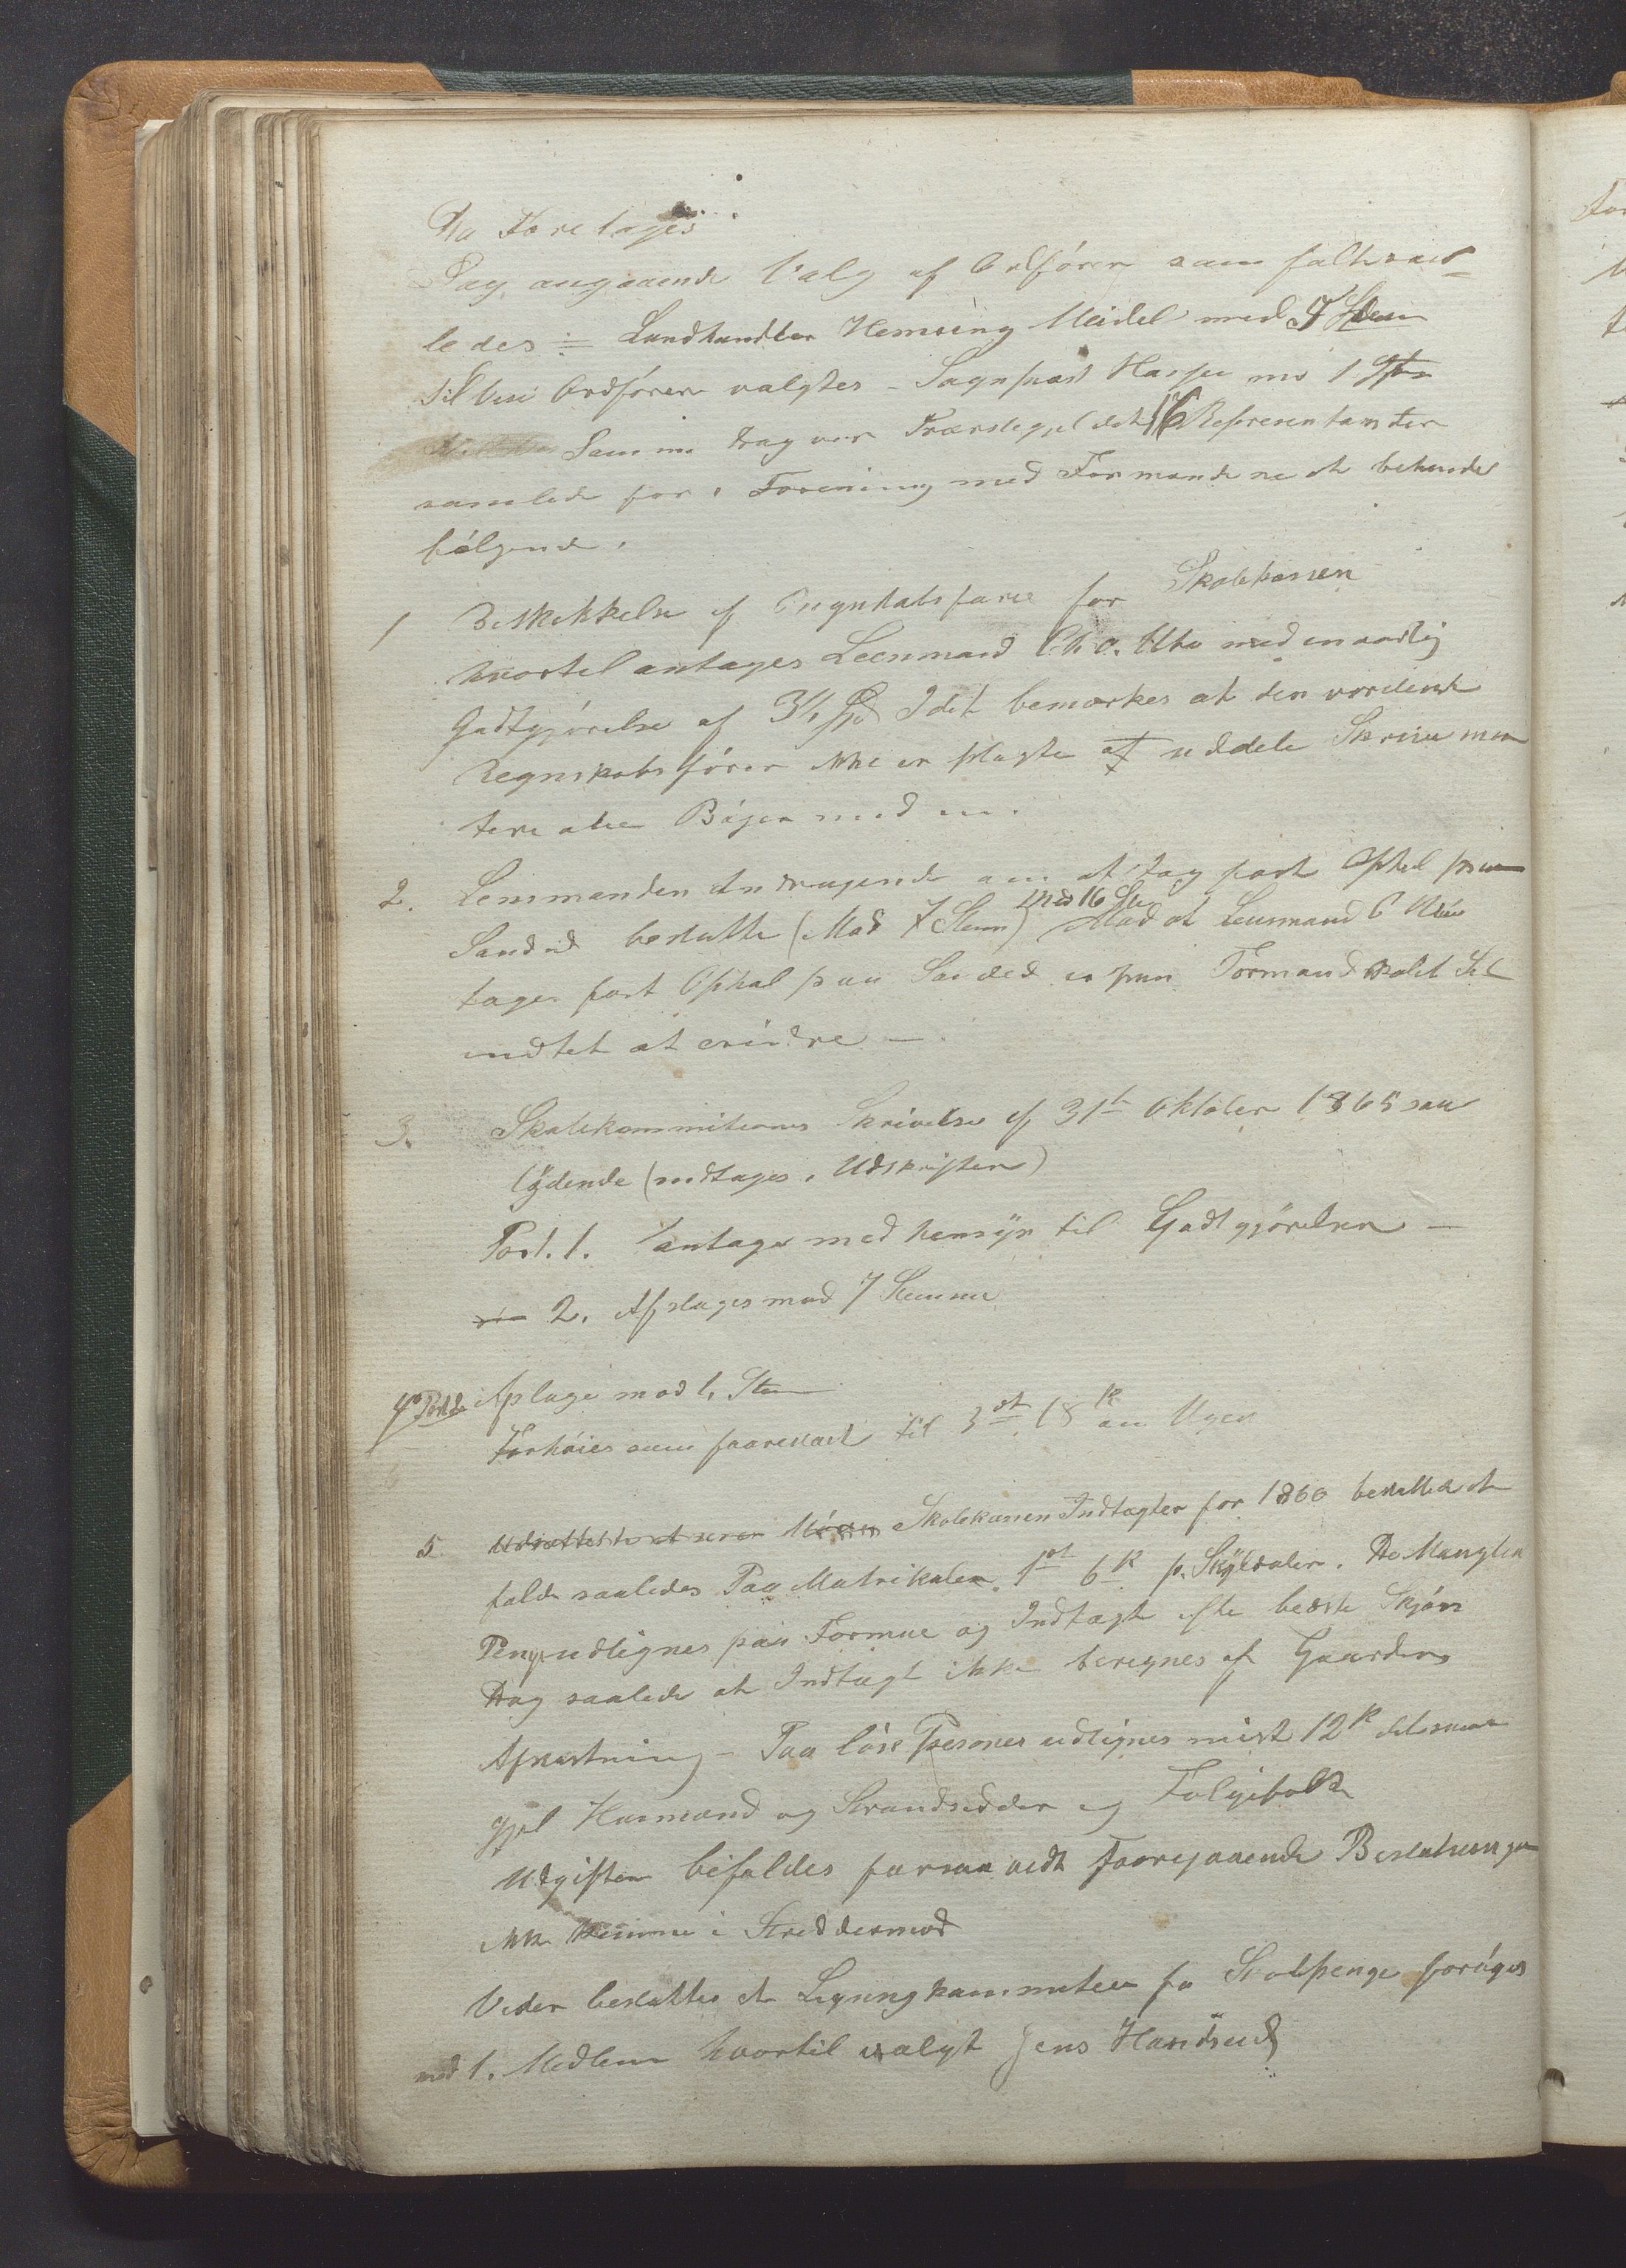 Da Foretages
Sag angaaende Valg af Ordfører som falt saa-
ledes := Landhandler Henning Meidel med 7 Stem
til Vise Ordfører valgtes - Sognpræst med 1 Stem
Samme Dag var 16 Representanter
samlede for i Forening med Formændene at behandle
følgende.
1 Beskikkelse af Regnskabsfører for Skolekassen
hvortil antages Leensmand Ch. O. Utne med en aarlig
Godtgjørelse af 3½ Spd Idet bemærkes at den vordende
Regnskabsfører ikke er pligtig at uddele Skrive ma
teri aler Bøger med m.
2. Lensmanden Andragende om at tage fast Ophol paa
Sandeid beslutte (Mod 7 Stem) med 16 Ste Mod at Lensmand C Utne
tager fast Ophol paa Sandeid er fra Formandskabet Sid
indtet at erindre -
3. Skolekommitionens Skrivelse af 31te Oktober 1865 saa
lydende (indtages i Udskriften)
Post. 1. antages med hensyn til Godtgjørelsen -
2. Afslages mod 7 Stemmer
4de Post Afslages mod 1. Stem
Forhøies som foreslaaet til 3ort 18k om Ugen
5. Skolekassen Indtægter for 1866 beslutted at
falde saaledes Paa Matrikulen 1ort 6k p. Skylddaler. De Manglende
Penge udlignes paa Formue og Indtægt efter bedste Skjøn
Dog saaledes at Indtægt ikke beregnes af Gaardens
Afkastning - Paa løse Personer udlignes mindst 12k det samme
gjel Husmænd og Strandsidder og Følgefolk
Udgiften bifaldes forsaavidt Foregaaende Beslutninger
ikke komme i Strid dermod
Vider besluttes at Ligningskommiteen for Skolepenge forøges
med 1. Medlem hvortil valgt Jens